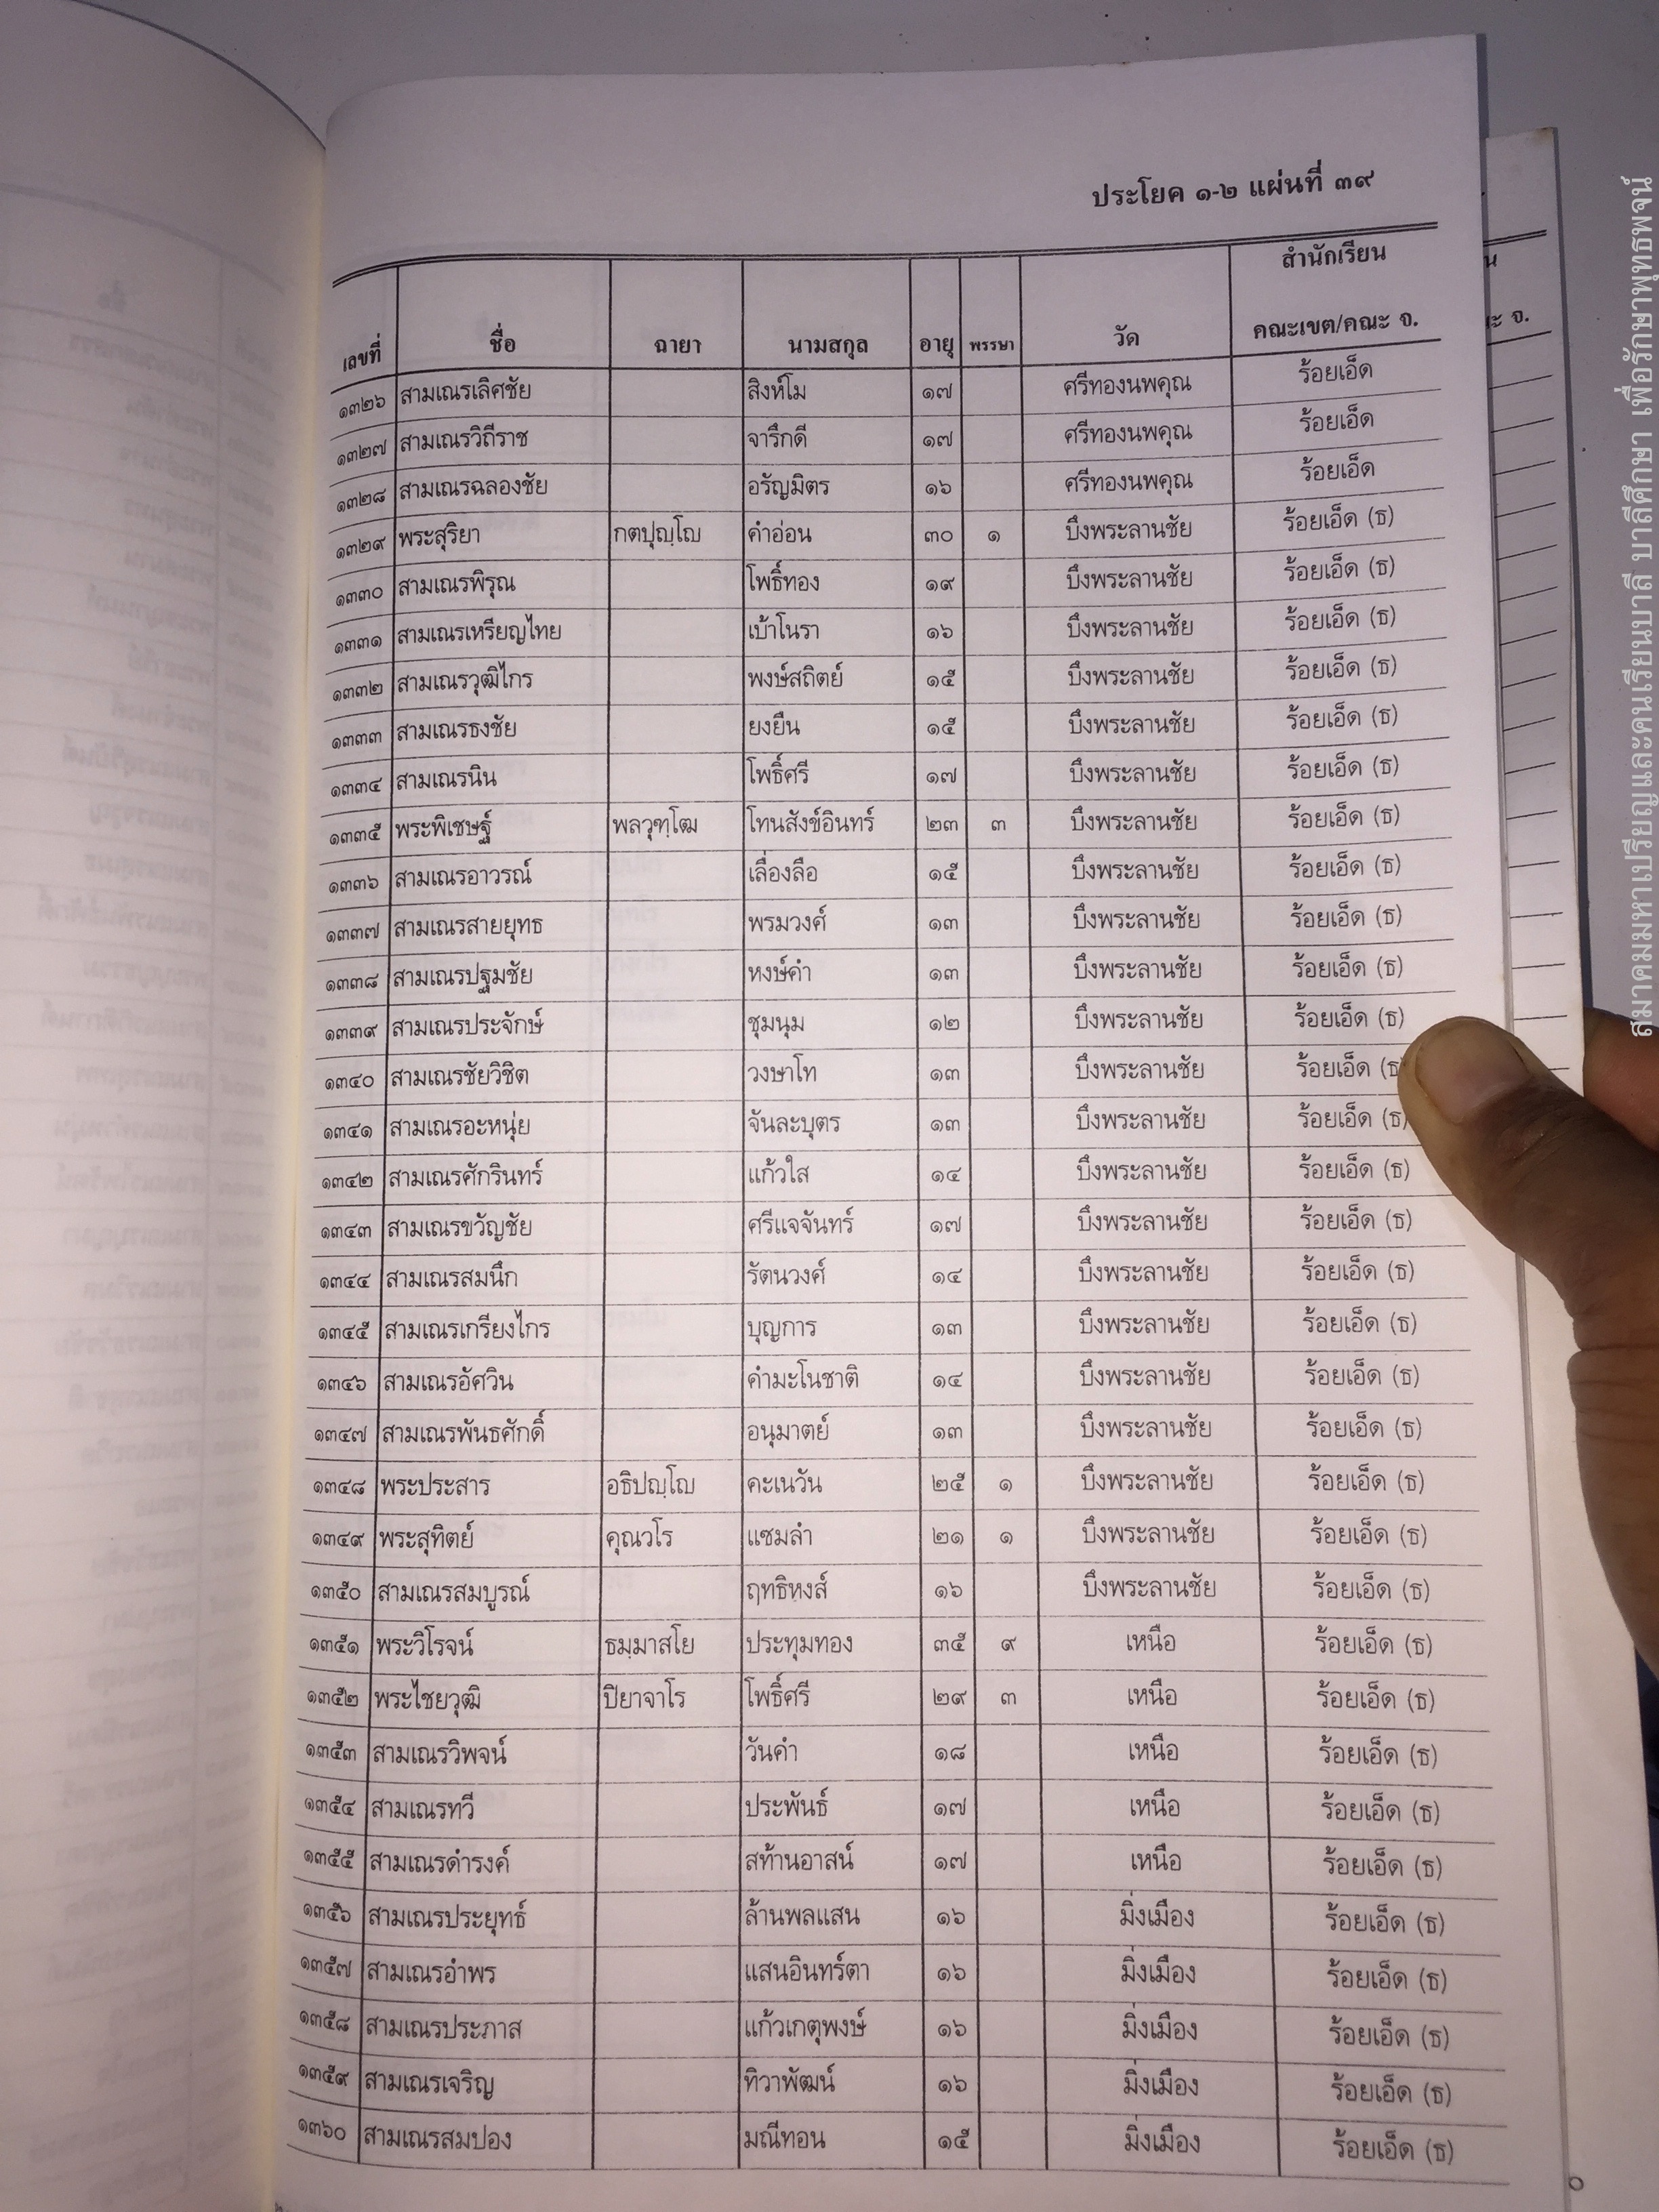 ประโยค ๑-๒ แผ่นที่ ๓๙
สำนักเรียน
เลขที่ ชื่อ ฉายา นามสกุล อายุ พรรษา วัด คณะเขต/คณะ จ.
๑๓๒๖ สามเณรเลิศชัย สิงห์โม ๑๗ ศรีทองนพคุณ ร้อยเอ็ด
๑๓๒๗ สามเณรวิถีราช จารึกดี ๑๗ ศรีทองนพคุณ ร้อยเอ็ด
๑๓๒๘ สามเณรฉลองชัย อรัญมิตร ๑๖ ศรีทองนพคุณ ร้อยเอ็ด
๑๓๒๙ พระสุริยา กตปุญฺโญ คำอ่อน ๓๐ ๑ บึงพระลานชัย ร้อยเอ็ด (ธ)
๑๓๓๐ สามเณรพิรุณ โพธิ์ทอง ๑๙ บึงพระลานชัย ร้อยเอ็ด (ธ)
๑๓๓๑ สามเณรเหรียญไทย เบ้าโนรา ๑๖ บึงพระลานชัย ร้อยเอ็ด (ธ)
๑๓๓๒ สามเณรวุฒิไกร พงษ์สถิตย์ ๑๕ บึงพระลานชัย ร้อยเอ็ด (ธ)
๑๓๓๓ สามเณรธงชัย ยงยืน ๑๕ บึงพระลานชัย ร้อยเอ็ด (ธ)
๑๓๓๔ สามเณรนิน โพธิ์ศรี ๑๗ บึงพระลานชัย ร้อยเอ็ด (ธ)
๑๓๓๕ พระพิเชษฐ์ พลวุฑฺโฒ โทนสังข์อินทร์ ๒๓ ๓ บึงพระลานชัย ร้อยเอ็ด (ธ)
๑๓๓๖ สามเณรอาวรณ์ เลื่องลือ ๑๕ บึงพระลานชัย ร้อยเอ็ด (ธ)
๑๓๓๗ สามเณรสายยุทธ พรมวงศ์ ๑๓ บึงพระลานชัย ร้อยเอ็ด (ธ)
๑๓๓๘ สามเณรปฐมชัย หงษ์คำ ๑๓ บึงพระลานชัย ร้อยเอ็ด (ธ)
๑๓๓๙ สามเณรประจักษ์ ชุมนุม ๑๒ บึงพระลานชัย ร้อยเอ็ด (ธ)
๑๓๔๐ สามเณรชัยวิชิต วงษาโท ๑๓ บึงพระลานชัย ร้อยเอ็ด (ธ
๑๓๔๑ สามเณรอะหนุ่ย จันละบุตร ๑๓ บึงพระลานชัย ร้อยเอ็ด (ธ)
๑๓๔๒ สามเณรศักรินทร์ แก้วใส ๑๔ บึงพระลานชัย ร้อยเอ็ด (ธ)
๑๓๔๓ สามเณรขวัญชัย ศรีแจจันทร์ ๑๗ บึงพระลานชัย ร้อยเอ็ด (ธ)
๑๓๔๔ สามเณรสมนึก รัตนวงศ์ ๑๔ บึงพระลานชัย ร้อยเอ็ด (ธ)
๑๓๔๕ สามเณรเกรียงไกร บุญการ ๑๓ บึงพระลานชัย ร้อยเอ็ด (ธ)
๑๓๔๖ สามเณรอัศวิน คำมะโนชาติ ๑๔ บึงพระลานชัย ร้อยเอ็ด (ธ)
๑๓๔๗ สามเณรพันธศักดิ์ อนุมาตย์ ๑๓ บึงพระลานชัย ร้อยเอ็ด (ธ)
๑๓๔๘ พระประสาร อธิปญฺโญ คะเนวัน ๒๕ ๑ บึงพระลานชัย ร้อยเอ็ด (ธ)
๑๓๔๙ พระสุทิตย์ คุณวโร แซมลำ ๒๑ ๑ บึงพระลานชัย ร้อยเอ็ด (ธ)
๑๓๕๐ สามเณรสมบูรณ์ ฤทธิหงส์ ๑๖ บึงพระลานชัย ร้อยเอ็ด (ธ)
๑๓๕๑ พระวิโรจน์ ธมฺมาสโย ประทุมทอง ๓๕ ๙ เหนือ ร้อยเอ็ด (ธ)
๑๓๕๒ พระไชยวุฒิ ปิยาจาโร โพธิ์ศรี ๒๙ ๓ เหนือ ร้อยเอ็ด (ธ)
๑๓๕๓ สามเณรวิพจน์ วันคำ ๑๘ เหนือ ร้อยเอ็ด (ธ)
๑๓๕๔ สามเณรทวี ประพันธ์ ๑๗ เหนือ ร้อยเอ็ด (ธ)
๑๓๕๕ สามเณรดำรงค์ สท้านอาสน์ ๑๗ เหนือ ร้อยเอ็ด (ธ)
๑๓๕๖ สามเณรประยุทธ์ ล้านพลแสน ๑๖ มิ่งเมือง ร้อยเอ็ด (ธ)
๑๓๕๗ สามเณรอำพร แสนอินทร์ตา ๑๖ มิ่งเมือง ร้อยเอ็ด (ธ)
๑๓๕๘ สามเณรประภาส แก้วเกตุพงษ์ ๑๖ มิ่งเมือง ร้อยเอ็ด (ธ)
๑๓๕๙ สามเณรเจริญ ทิวาพัฒน์ ๑๖ มิ่งเมือง ร้อยเอ็ด (ธ)
๑๓๖๐ สามเณรสมปอง มณีทอน ๑๕ มิ่งเมือง ร้อยเอ็ด (ธ)
สมาคมมหาเปรียญและคนเรียนบาลี บาลีศึกษา เพื่อรักษาพุทธพจน์